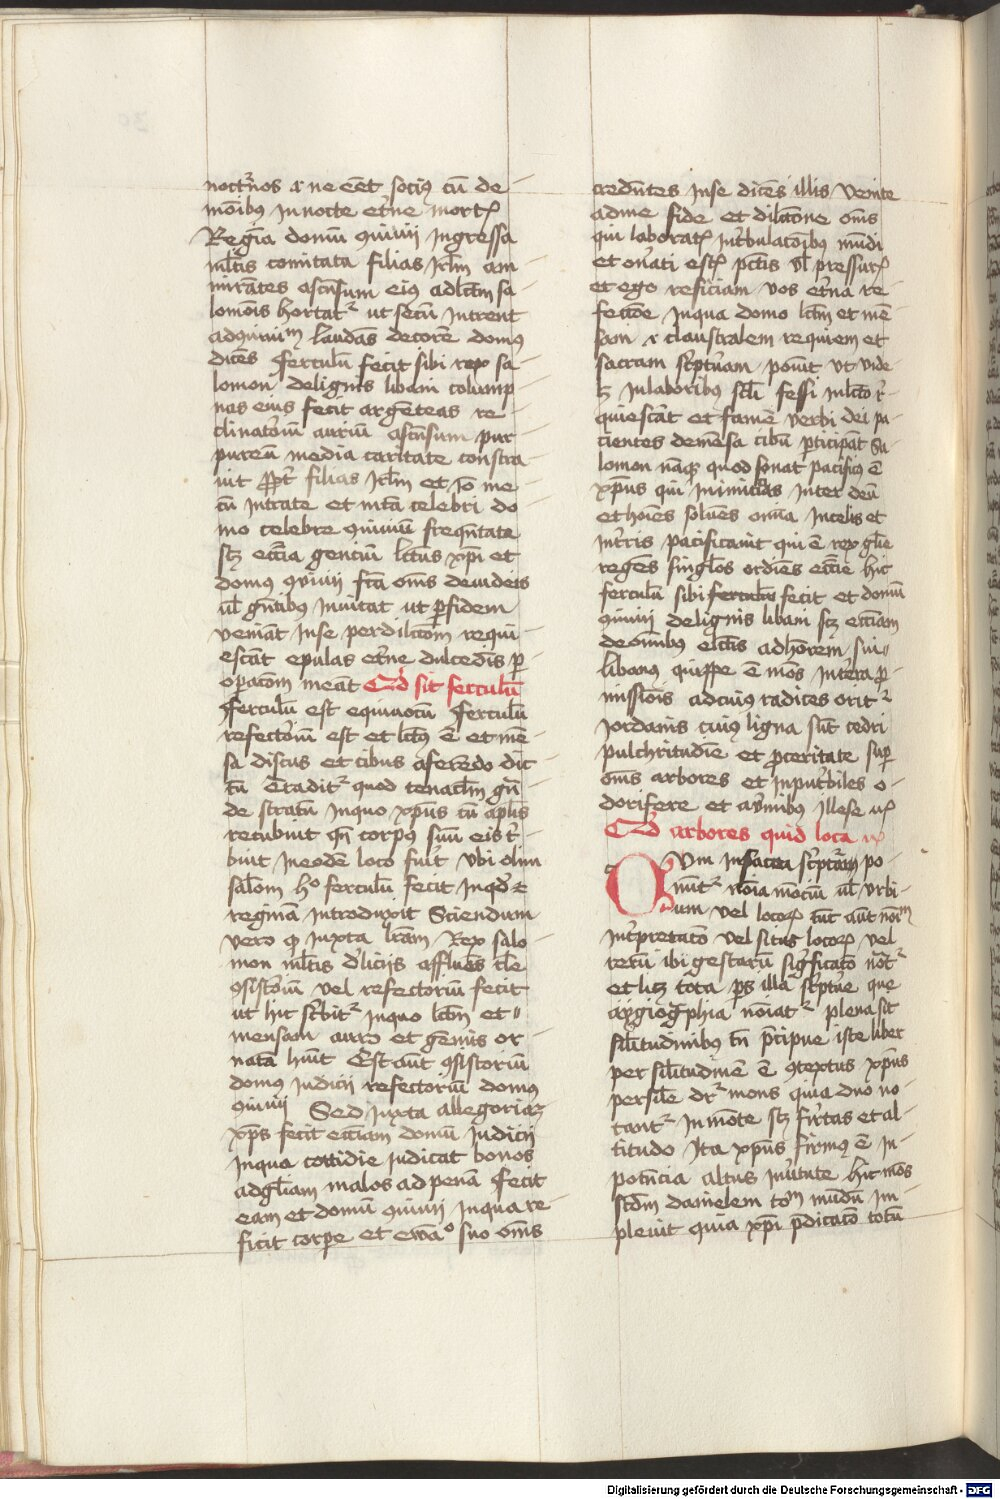 noctr̃nos ⁊ ne eēt sociꝰ cū de-
mōibus In nocte et̃ne mortꝭ
Regīa domū ꝯuiuij Ingressa
ml̃tis comitata filias Irlm̃ am
mirātes ascēsum eiꝰ ad lctm̃ sa-
lomōis hortat᷑ ut secū Intrent
ad ꝯuiuiᵐ laudās decorē domꝰ
dicēs ferculū fecit sibi rex sa-
lomon de lignis libani colump-
nas eius fecit argēteas re-
clinatoriū auriū ascēsum pur-
pureū media caritate constra-
uit ꝓpt̃ filias Irlm̃ et Iõ me-
cū Intrate et mēa celebri do-
mo celebre ꝯuiuiū freqñtate
scꝫ eccīa genciū lctūs xp̄i et
domꝰ ꝯuiuij fcā om̃s de iudeis
ul̃ gn̄tibus Inuitat ut ꝑ fidem
veniāt In se per dilcōm̃ requi-
escāt epulas et̃ne dulcedīs ꝑ
oꝑacōm meāt Qd̃ sit ferculū
ferculū est equiuocū ferculū
refectoriū est et lctūs ē et mē-
sa discus et cibus a ferēdo dic-
tū Traditᷣ quod tenaclm̃ gn̄
de stratū In quo xp̄us cū apl̃is
recubuit qñ corpꝰ suū eis t̃-
buit In eodē loco fuīt vbi olim
salōm hͦ ferculū fecit In qd̃ et
reginā Introduxit Sciendum
vero ꝙ iuxta lr̄am Rex salo-
mon ml̃tis diliciis affluēs tl̃e
ꝯsistoriū vel refectoriū fecit
ut hic scͥbit᷑ In quo lctm̃ et
mensam auro et gēmis or-
natā huit Est aut̃ ꝯsistoriū
domꝰ iudicij refectoriū domꝰ
ꝯuiuij Sed iuxta allegoriaꝫ
xp̄s fecit eccīam domū Iudicij
In qua cottidie iudicat bonos
ad gl̃iam malos ad penā fecit
eam et domū ꝯuiuij In qua re-
ficit corpe et ewāᵒ suo om̃s
credntes In se dicēs illis venite
ad me fide et dilcōne om̃s
qui laboratꝭ In t̃bulacōibꝰ mūdi
et onati estꝭ pctis ul̃ pressurꝭ
et ego reficiam vos et̃na re-
fectōe In qua domo lctm̃ et mē-
sam ⁊ claustralem requiem et
sacram sc̃ptuam ponit ut vide-
lꝫ In laboribꝰ scli fessi In lcto r̃-
quiescāt et famē verbi dei pa-
cientes de mēsa cibū ꝑticipāt Sa-
lomon nāqꝫ quod sonat pacificꝰ ē
xp̄us qui Inimicitias Inter deū
et hoīes soluēs om̃ia In celis et
In t̃ris pacificauit qui ē rex gl̃ie
regēs singl̃os ordiēs eccīe hic
ferculū sibi ferculū fecit et domū
ꝯuiuij de lignis libani scꝫ eccīam
de om̃ibus elctis ad honorēm sui
libanus quippe ē mōs In t̃ra ꝓ-
missiōis ad cuiꝰ radices orit᷑
Jordanis cuiꝰ ligna sūt cedri
pulchritudīe et ꝓceritate suꝑ
om̃s arbores et Inputrbiles o-
dorifere et av̄mibus illese
Qd̃ arbores quid loca
Qvm In sacra sc̃ptura po-
nūt᷑ noīa mōciū ul̃ vrbi-
um vel locorꝝ tūc aut noīm
Int̃pretatō vel situs locorꝝ vel
rerū ibi gestarū sigr̃ficatō notᷣ
et licꝫ tota ps illā sc̃ptur̃e que
aygiogphia noiatᷣ plena sit
silitudinibꝰ tn̄ p̄cipue iste liber
per silitudinē ē ꝯtextus xp̄us
per silē dr᷑ mons quia duo no-
tant᷑ In mōte scꝫ firtas et al-
titudo Ita xp̄us firmꝰ ē In
potncia altus In v̄tute hic mōs
scdm̃ danielem toᵐ mūdū Im-
pleuit quia xp̄i p̄dicatō totū
Digitalisierung gefördert durch die Deutsche Forschungsgemeinschaft - DFG